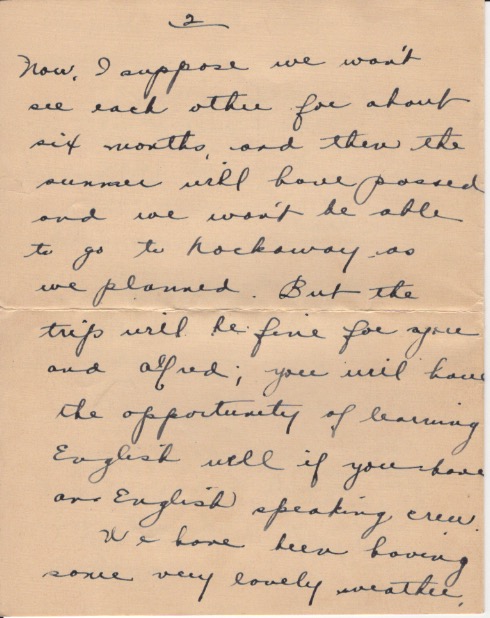 2
Now, I suppose we won't
see each other for about
six months, and then the
summer will have passed
and we won't be able
to go to Rockaway as
we planned. But the
trip will be fine for you
and Alfred; you will have
the opportunity of learning
English well if you have
an English speaking crew.
We have been having
some very lovely weather,